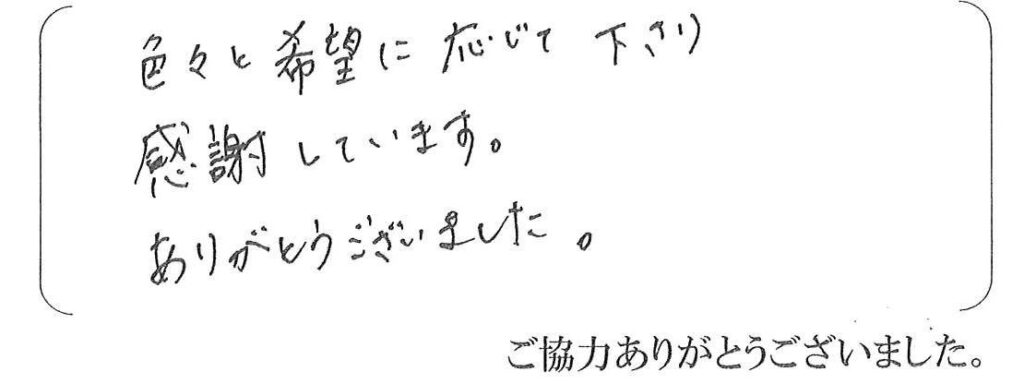 色々と希望に応じて下さり
感謝しています。
ありがとうございました。
ご協力ありがとうございました。